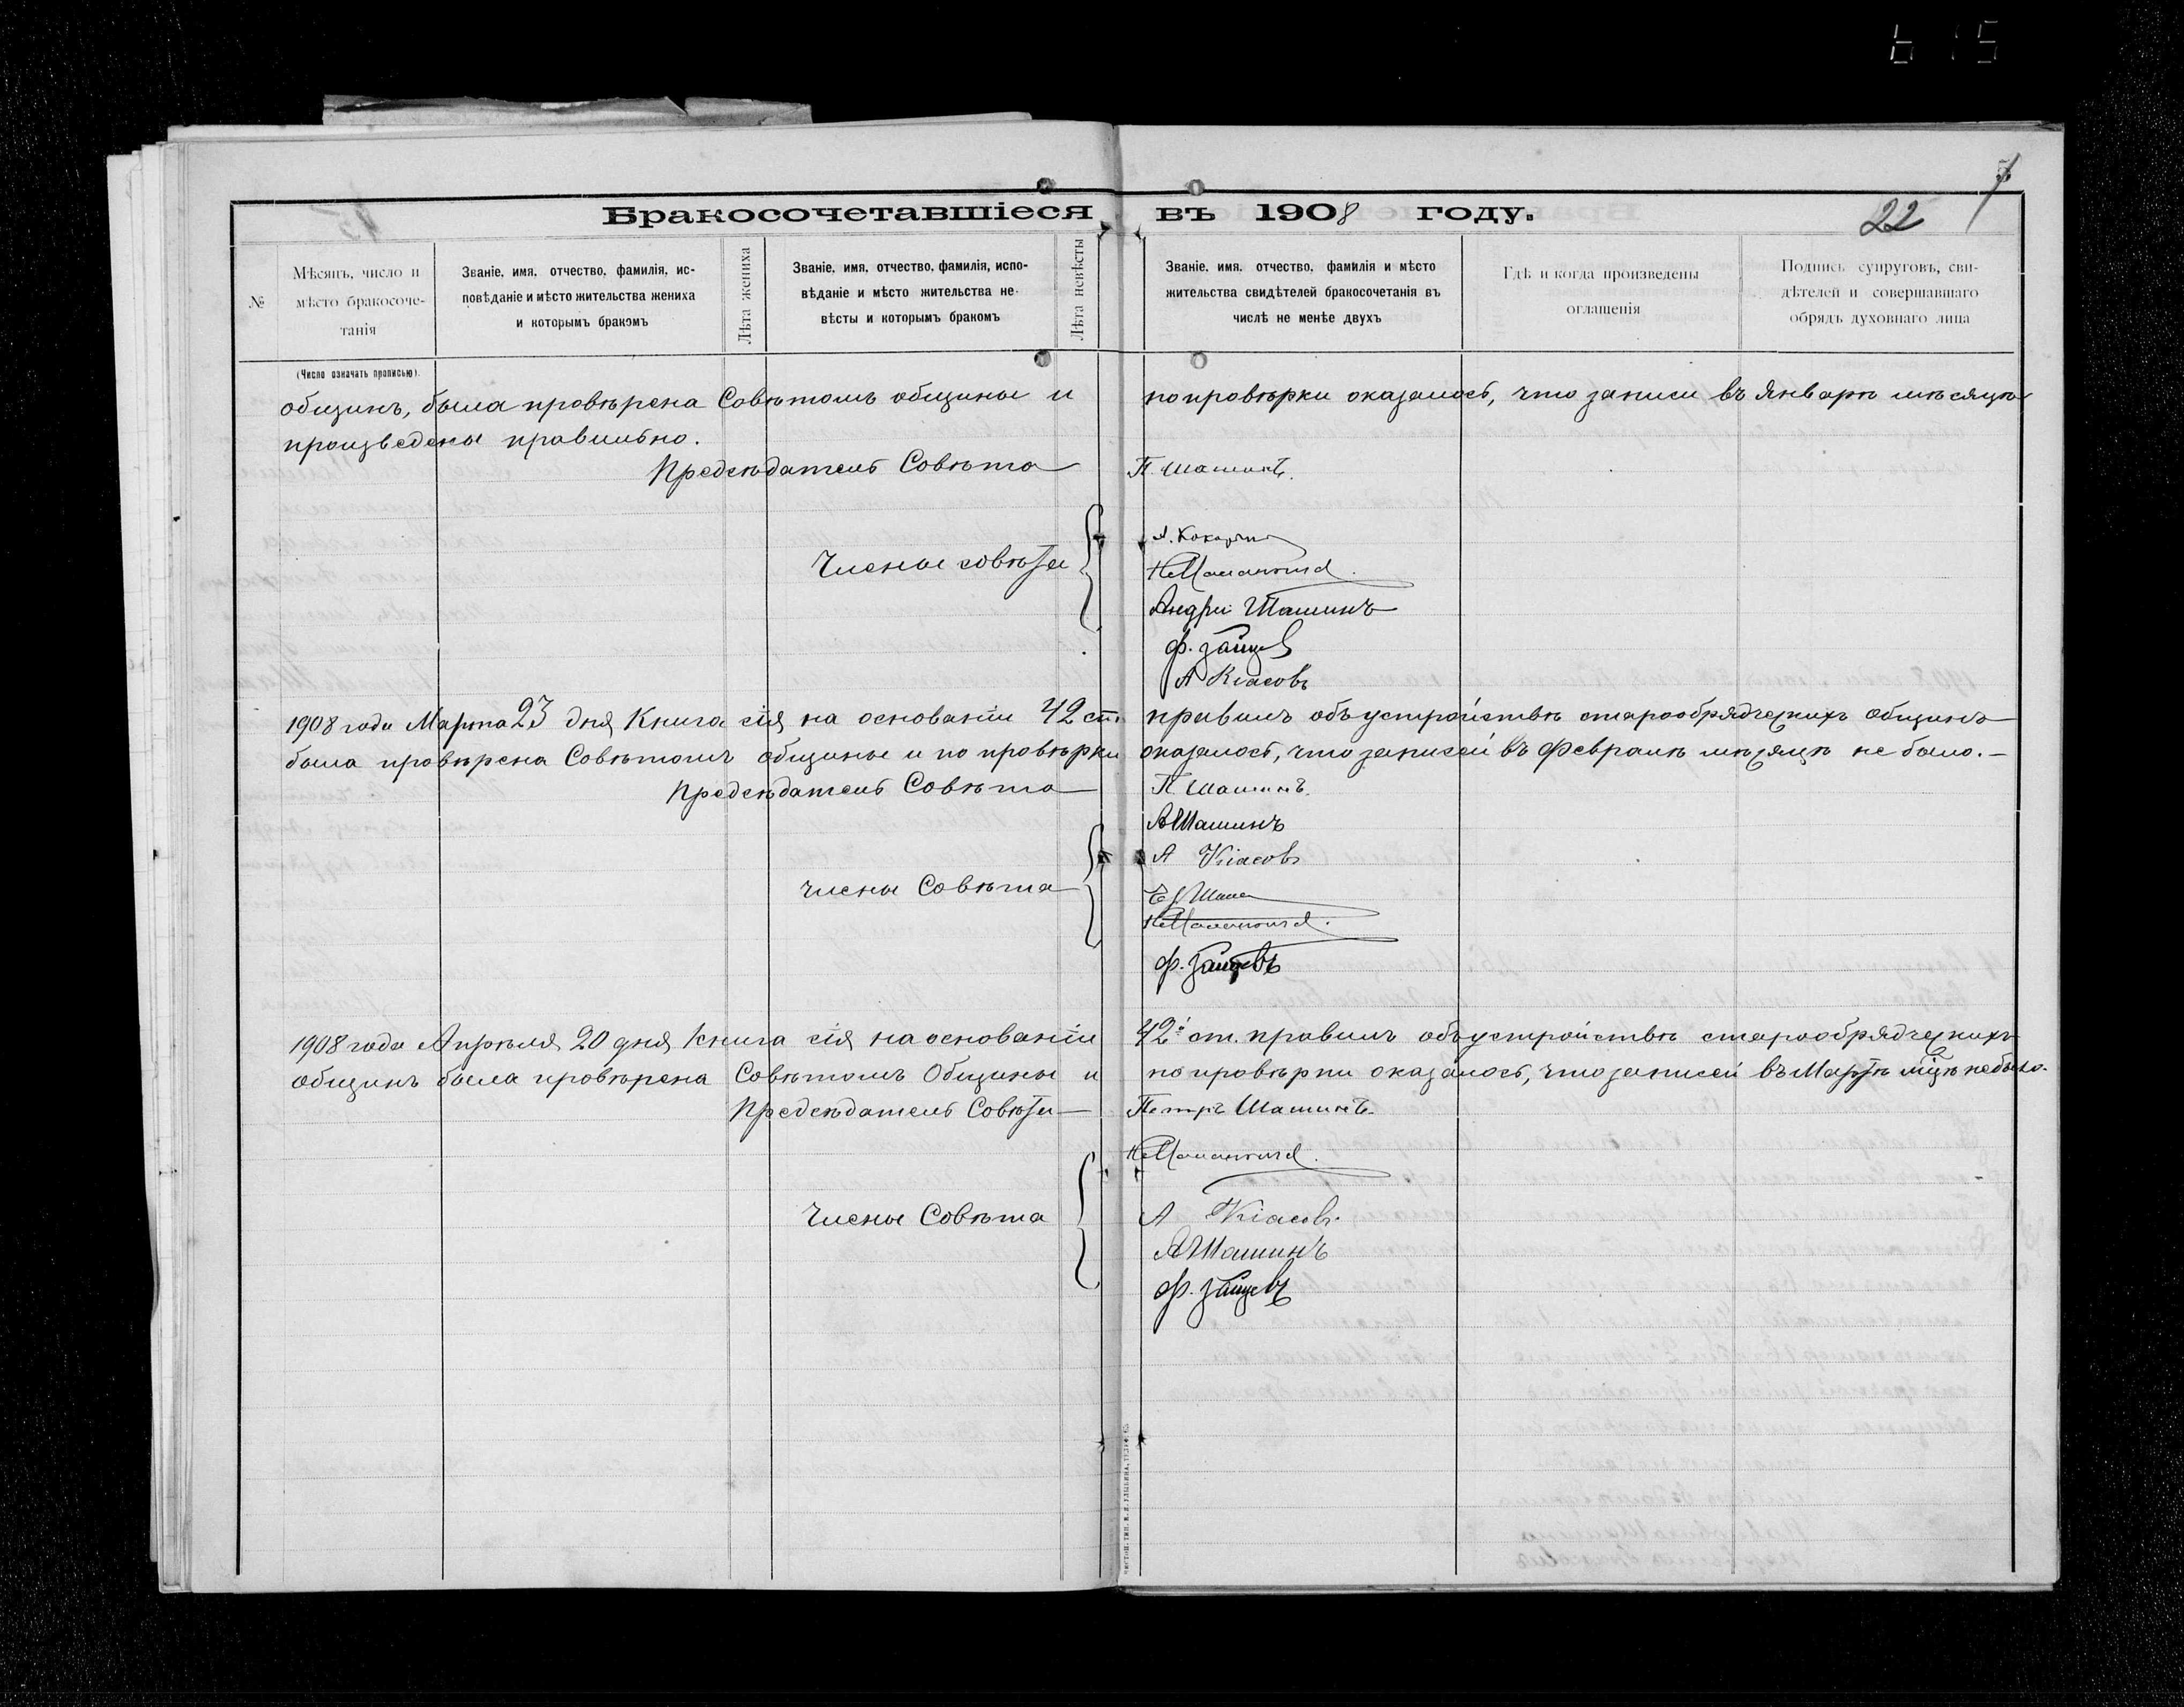 Бракосочетавшіеся въ 1908 году.
22
№
Мѣсяцъ, число и
мѣсто бракосоче-
танія
Званіе, имя, отчество, фамилія, ис-
повѣданіе и мѣсто жительства жениха
и которымъ бракомъ
Лѣта жениха
Званіе, имя, отчество, фамилія, испо-
вѣданіе и мѣсто жительства не-
вѣсты и которымъ бракомъ
Лѣта невѣсты
Званіе, имя, отчество, фамилія и мѣсто
жительства свидѣтелей бракосочетанія въ
числѣ не менѣе двухъ
Гдѣ и когда произведены
оглашенія
Подпись супруговъ, сви-
дѣтелей и совершавшаго
обрядъ духовнаго лица
(Число означать прописью).
общинъ, была провѣрена Совѣтомъ общины и по провѣрки оказалось, что записи въ Январѣ мѣсяцѣ
произведены правильно.
Предсѣдатель Совѣта П. Шашинъ.
Члены совѣта
Андрей Шашинъ
Ф. Зайцев
А Власовъ
1908 года Марта 23 дня Книга сія на основаніи 42 ст. правилъ объ устройствѣ старообрядческихъ общинъ
была провѣрена Совѣтомъ общины и по провѣрки оказалось, что записей въ Февралѣ мѣсяцѣ не было.-
Предсѣдатель Совѣта П. Шашинъ.
А Шашинъ
А Власовъ
члены Совѣта
Ф. Зайцевъ
1908 года Апрѣля 20 дня Книга сія на основаніи 42й ст. правилъ объ устройствѣ старообрядческихъ
общинъ была провѣрена Совѣтомъ Общины и по провѣрки оказалось, что записей въ Мартѣ мцѣ не было.
Предсѣдатель Совѣта Петръ Шашинъ.
Члены Совѣта
А Власовъ.
А Шашинъ
Ф. Зайцевъ